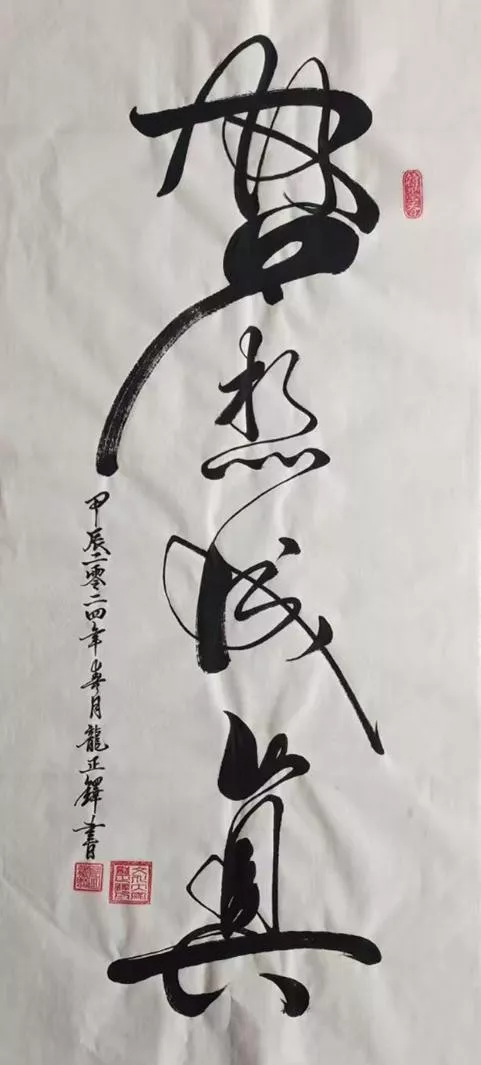 夢想成真
甲辰二零二四年春月龍正鐸書